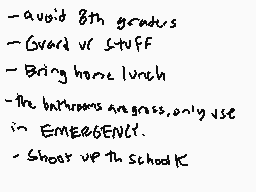 - avoid 8th graders
- Guard ur stuff
- Bring home lunch
- the bathrooms are gross, only use
in EMERGENCY.
- Shoot up th school K